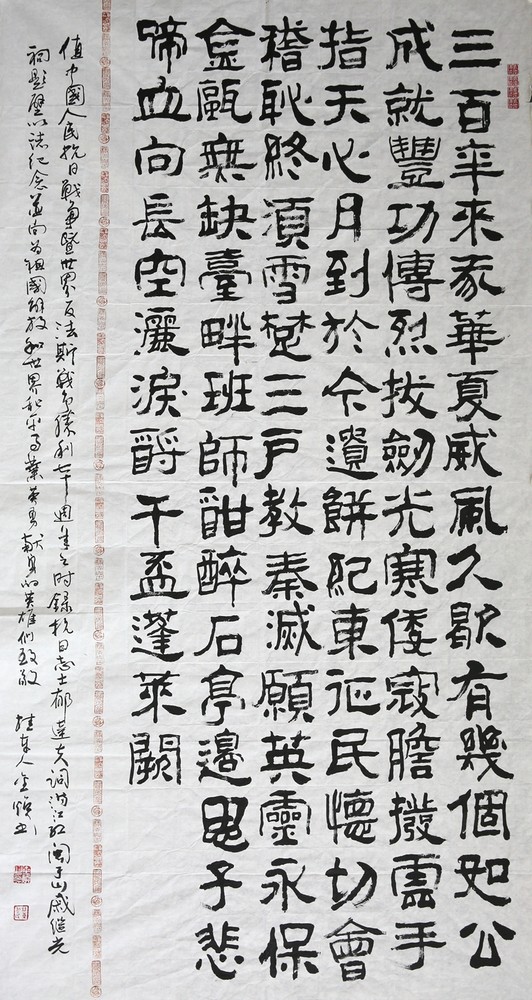 三百年來我華夏威風久歇有幾個如公
成就豐功傳烈拔劍光寒倭寇膽撥雲手
指天心月到於今遺餅紀東征民懷切會
稽恥終須雪楚三戶教秦滅願英靈永保
金甌無缺臺畔班師酣醉石亭邊思子悲
啼血向長空灑淚酹千盃蓬萊闕
值中國人民抗日戰爭暨世界反法斯戰爭勝利七十週年之時錄抗日志士郁達夫詞滿江紅閩于山戚繼光
祠題壁以誌紀念並向為祖國解放和世界和平事業英勇獻身的英雄們致敬